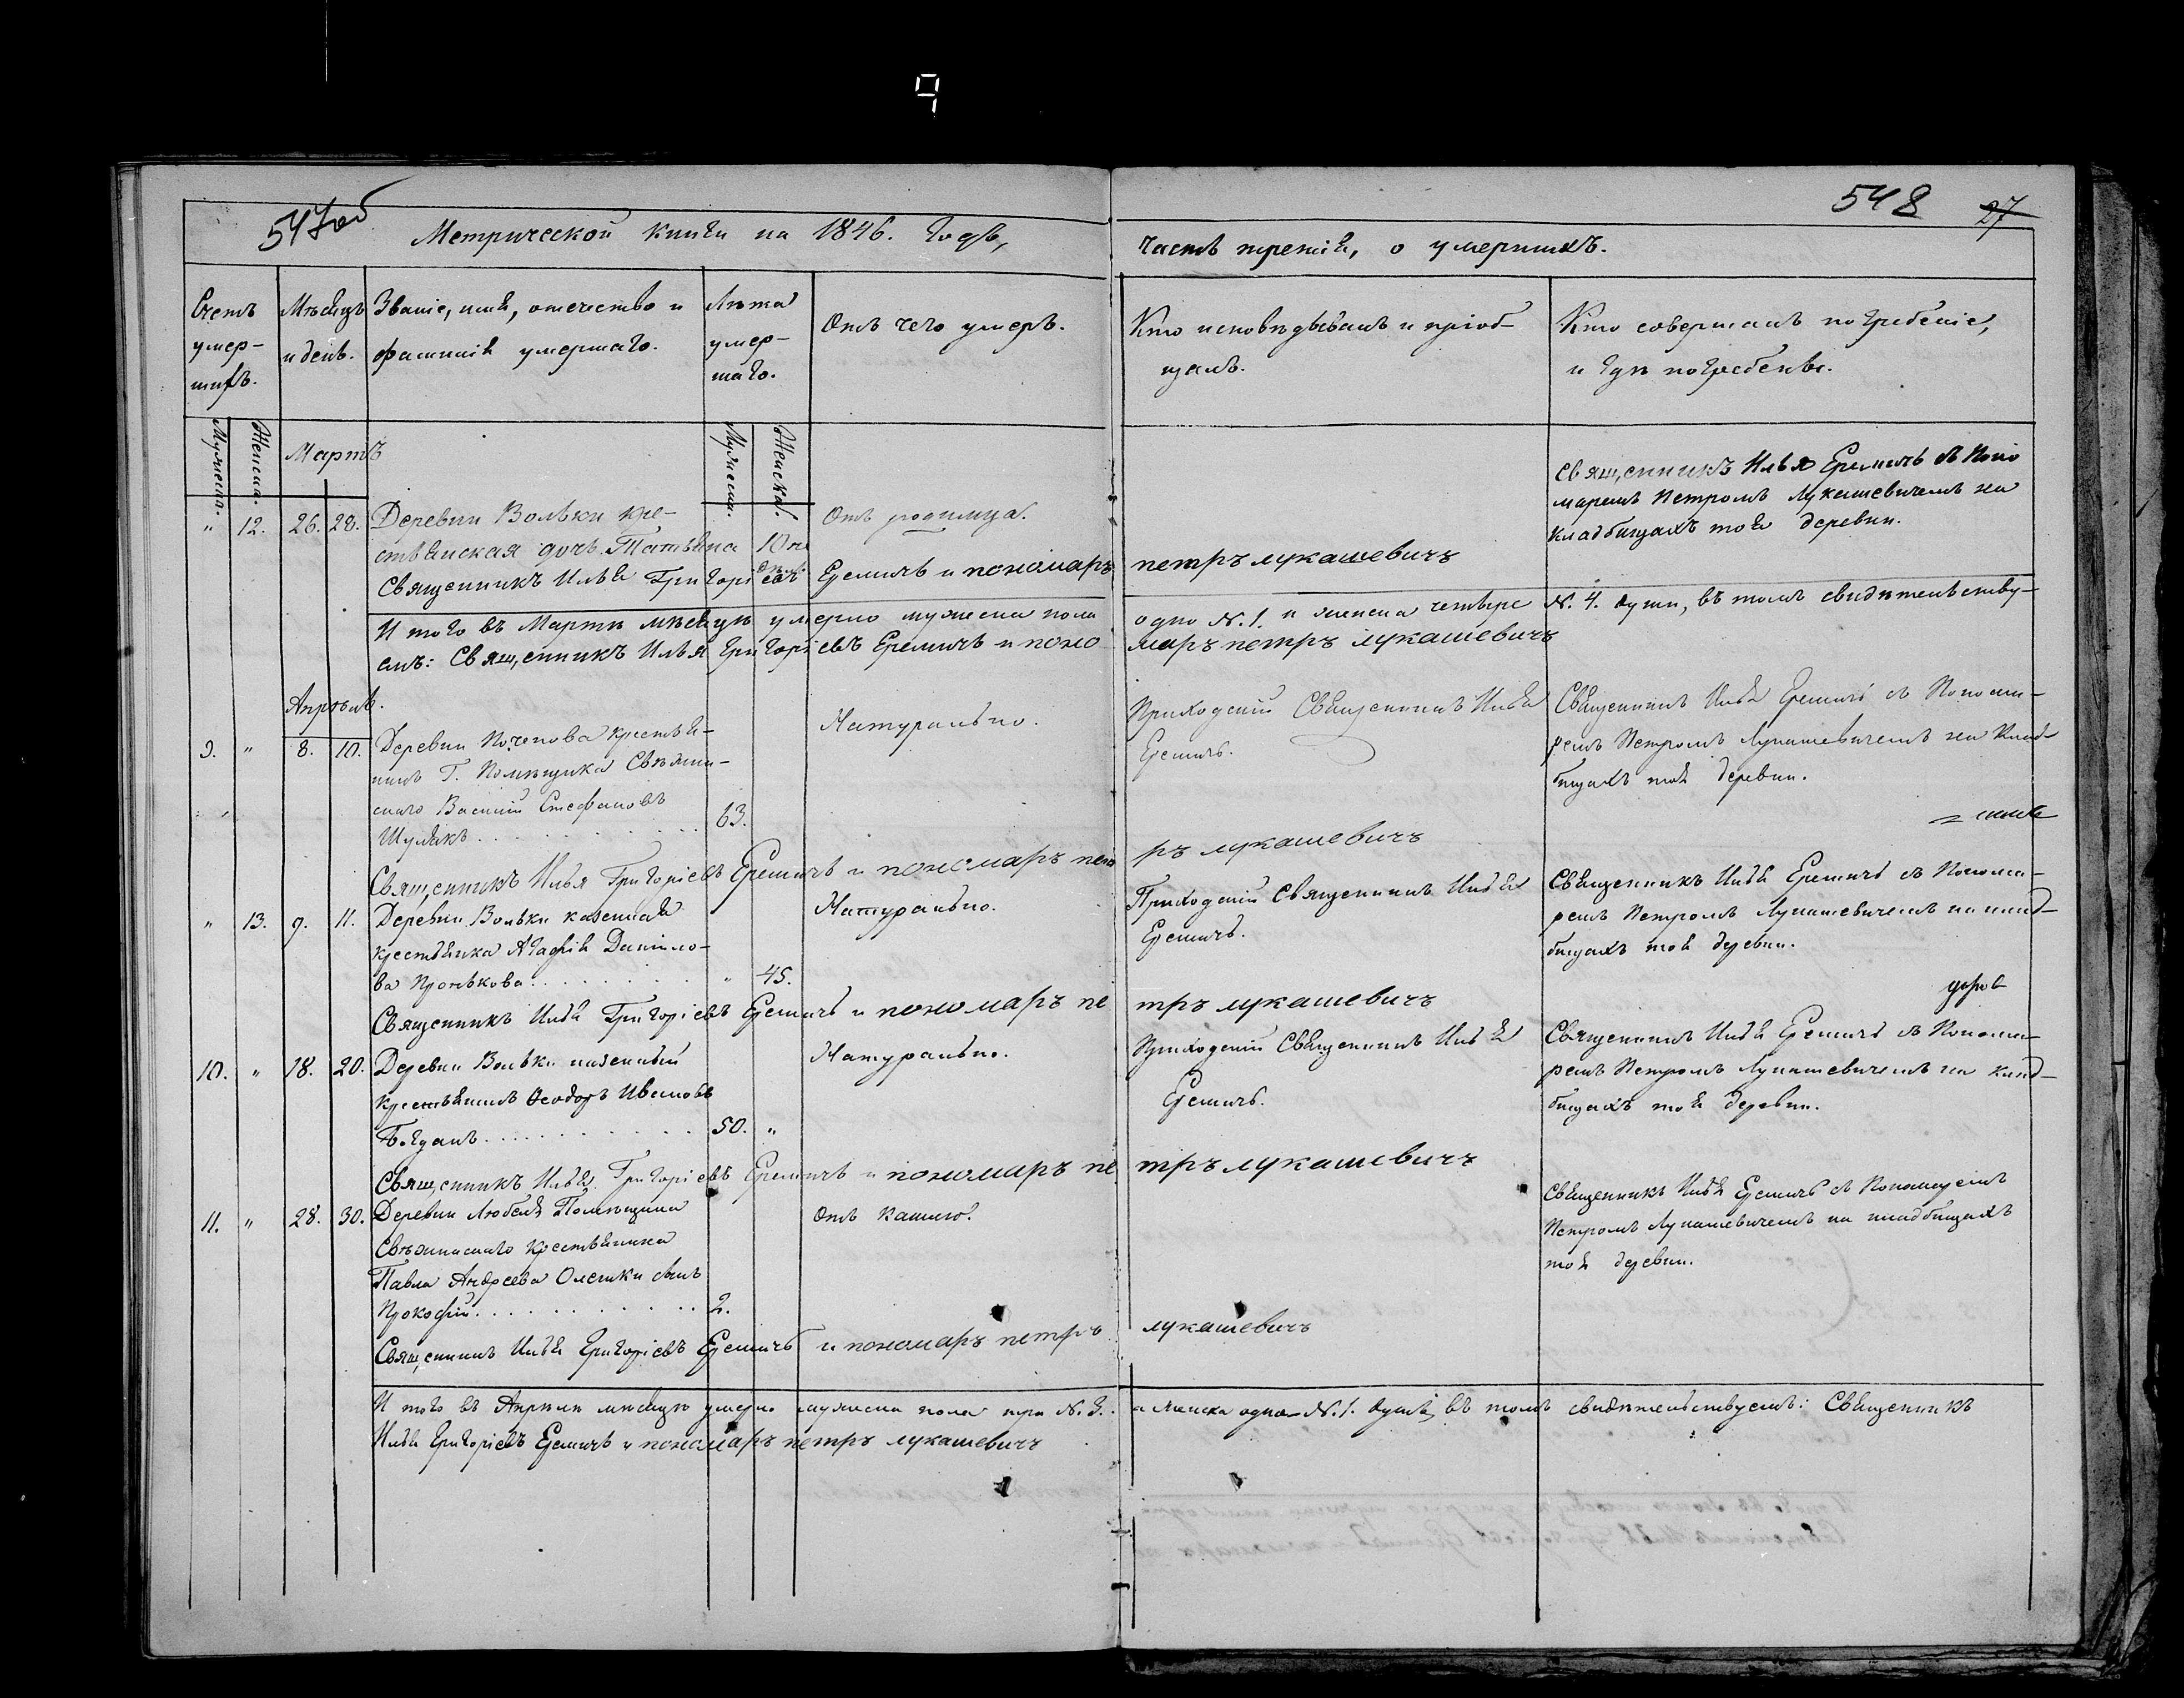 547об
548
27
Метрической книги на 1846. годъ,
часть третія, о умершихъ.
Счетъ
умер-
шихъ.
Мѣсяцъ
и день.
Званіе, имя, отечество и
фамилія умершаго.
Лѣта
умер-
шаго.
Отъ чего умеръ.
Кто исповѣдывалъ и пріоб-
щалъ.
Кто совершалъ погребеніе,
и гдѣ погребены.
Мужеска.
Женска.
Мужеска.
Женска.
Мартъ
" 12. 26. 28. Деревни Вольки кре-
стьянская дочь Татьяна 10
Отъ родимца.
Священникъ Илья Еремичъ съ Поно
маремъ Петромъ Лукашевичемъ на
кладбищахъ тоя деревни.
Священникъ Илья Григоріевъ Еремичъ и пономаръ петръ лукашевичъ
И того въ Мартѣ мѣсяцѣ умерло мужеска пола одно N. 1. и женска четыре N. 4. души, въ томъ свидѣтельству-
емъ: Священникъ Илья Григоріевъ Еремичъ и поно маръ петръ лукашевичъ
Апрѣль.
9. " 8. 10. Деревни Поченова крестья-
нинъ Г. Помѣщика Свѣжин-
скаго Василій Стефановъ
Шулякъ . . . 63.
Натурально.
Приходскій Священникъ Илья
Еремичъ.
Священникъ Илья Еремичъ съ Понома-
ремъ Петромъ Лукашевичемъ на Клад-
бищахъ тоя деревни.
Священникъ Илья Григоріевъ Еремичъ и пономаръ пет ръ лукашевичъ
" 13. 9. 11. Деревни Вольки казенная
крестьянка Агафія Данило-
ва Пронькова . . . " 45.
Натурально.
Приходскій Священникъ Илья
Еремичъ.
Священникъ Илья Еремичъ съ Понома-
ремъ Петромъ Лукашевичемъ на клад-
бищахъ тоя деревни.
Священникъ Илья Григоріевъ Еремичъ и пономаръ пе тръ лукашевичъ
10. " 18. 20. Деревни Вольки казенный
крестьянинъ Ѳеодоръ Ивановъ
Богданъ . . . 50. "
Натурально.
Приходскій Священникъ Илья
Еремичъ.
Священникъ Илья Еремичъ съ Понома-
ремъ Петромъ Лукашевичемъ на клад-
бищахъ тоя деревни.
Священникъ Илья Григоріевъ Еремичъ и пономаръ пе тръ лукашевичъ
11. " 28. 30. Деревни Любеля Помѣщика
Свѣжинскаго крестьянина
Павла Андреева Олесика сынъ
Прокофій . . . 2.
Отъ кашлю.
Священникъ Илья Еремичъ съ Пономаремъ
Петромъ Лукашевичемъ на кладбищахъ
тоя деревни.
Священникъ Илья Григоріевъ Еремичъ и пономаръ петръ лукашевичъ
И того въ Апрѣлѣ мѣсяцѣ умерло мужеска пола три N. 3. а женска одна N. 1. душа, въ томъ свидѣтельствуемъ: Священникъ
Илья Григоріевъ Еремичъ и пономаръ петръ лукашевичъ